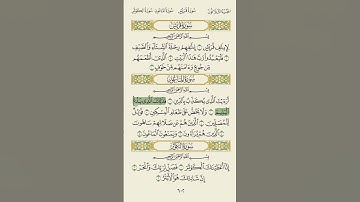 الجزء الثلاثون سورة قريش سورة الماعون سورة الكوثر
سُورَةُ قُرَيْشٍ
بِسْمِ ٱللَّهِ ٱلرَّحْمَٰنِ ٱلرَّحِيمِ
لِإِيلَٰفِ قُرَيْشٍ ١ إِۦلَٰفِهِمْ رِحْلَةَ ٱلشِّتَآءِ وَٱلصَّيْفِ
٢ فَلْيَعْبُدُوا۟ رَبَّ هَٰذَا ٱلْبَيْتِ ٣ ٱلَّذِىٓ أَطْعَمَهُم
مِّن جُوعٍ وَءَامَنَهُم مِّنْ خَوْفٍۭ ٤
سُورَةُ المَاعُونِ
بِسْمِ ٱللَّهِ ٱلرَّحْمَٰنِ ٱلرَّحِيمِ
أَرَءَيْتَ ٱلَّذِى يُكَذِّبُ بِٱلدِّينِ ١ فَذَٰلِكَ ٱلَّذِى يَدُعُّ
ٱلْيَتِيمَ ٢ وَلَا يَحُضُّ عَلَىٰ طَعَامِ ٱلْمِسْكِينِ ٣ فَوَيْلٌ
لِّلْمُصَلِّينَ ٤ ٱلَّذِينَ هُمْ عَن صَلَاتِهِمْ سَاهُونَ
٥ ٱلَّذِينَ هُمْ يُرَآءُونَ ٦ وَيَمْنَعُونَ ٱلْمَاعُونَ ٧
سُورَةُ الكَوْثَرِ
بِسْمِ ٱللَّهِ ٱلرَّحْمَٰنِ ٱلرَّحِيمِ
إِنَّآ أَعْطَيْنَٰكَ ٱلْكَوْثَرَ ١ فَصَلِّ لِرَبِّكَ وَٱنْحَرْ ٢
إِنَّ شَانِئَكَ هُوَ ٱلْأَبْتَرُ ٣
٦٠٢